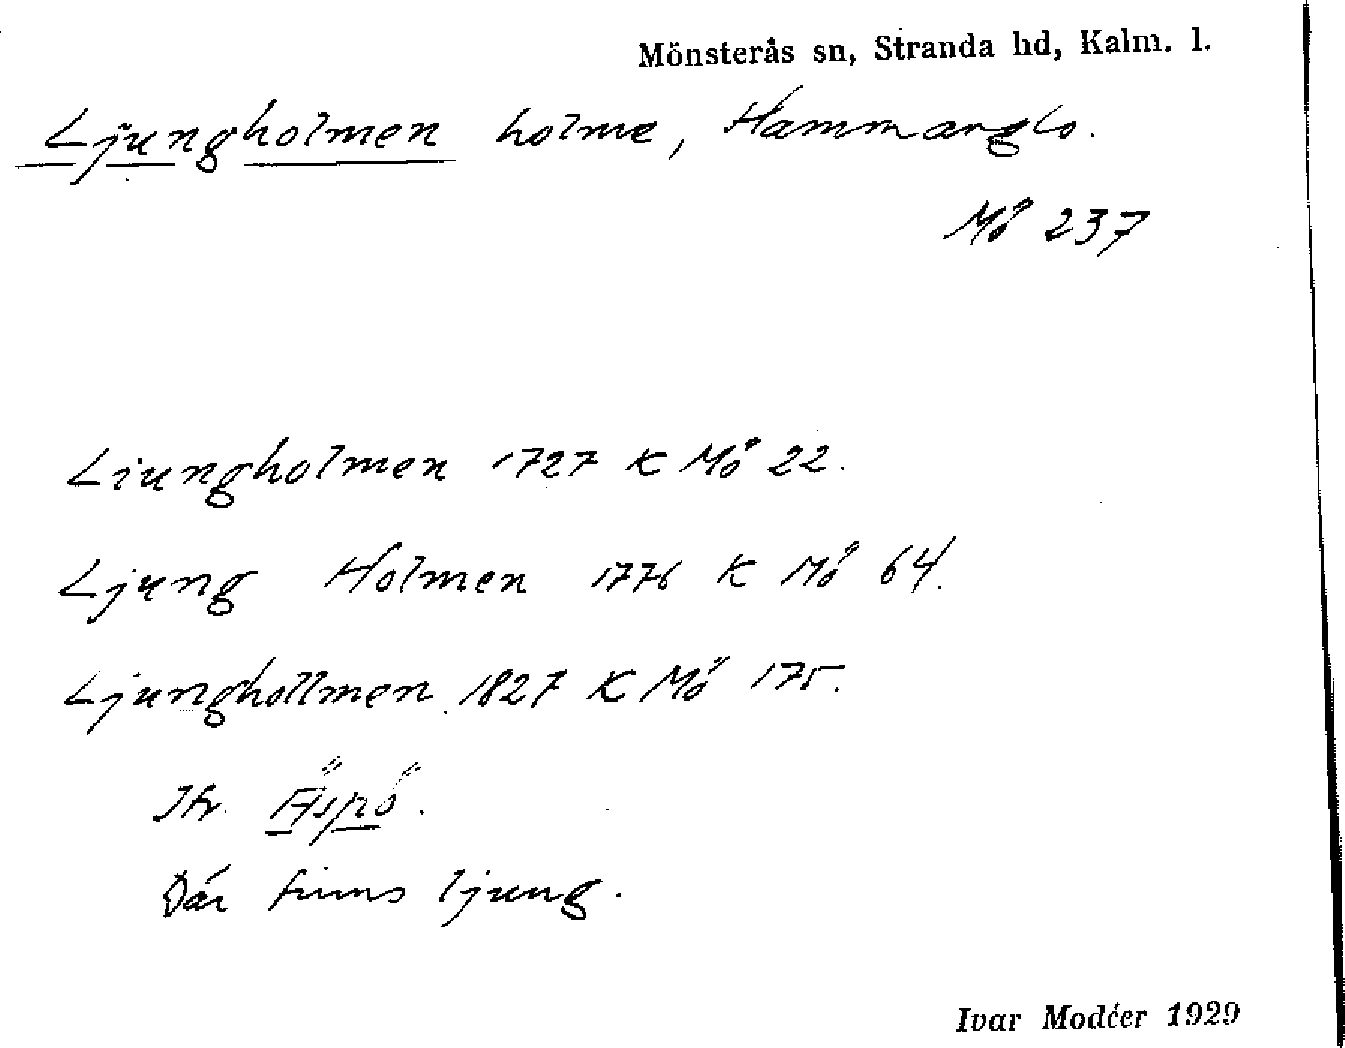 Mönsterås sn, Stranda hd, Kalm. l.
Ljungholmen holme, Hammarglo.
Mö 237
Liungholmen 1727 K Mö 22.
Ljung Holmen 1776 K Mö 64.
Ljunghollmen 1827 K Mö 175.
Jfr. Äspö.
Där finns ljung.
Ivar Modéer 1929